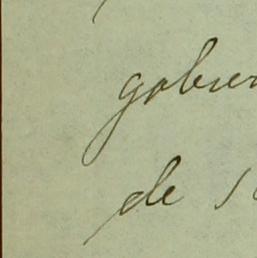 gobier
de